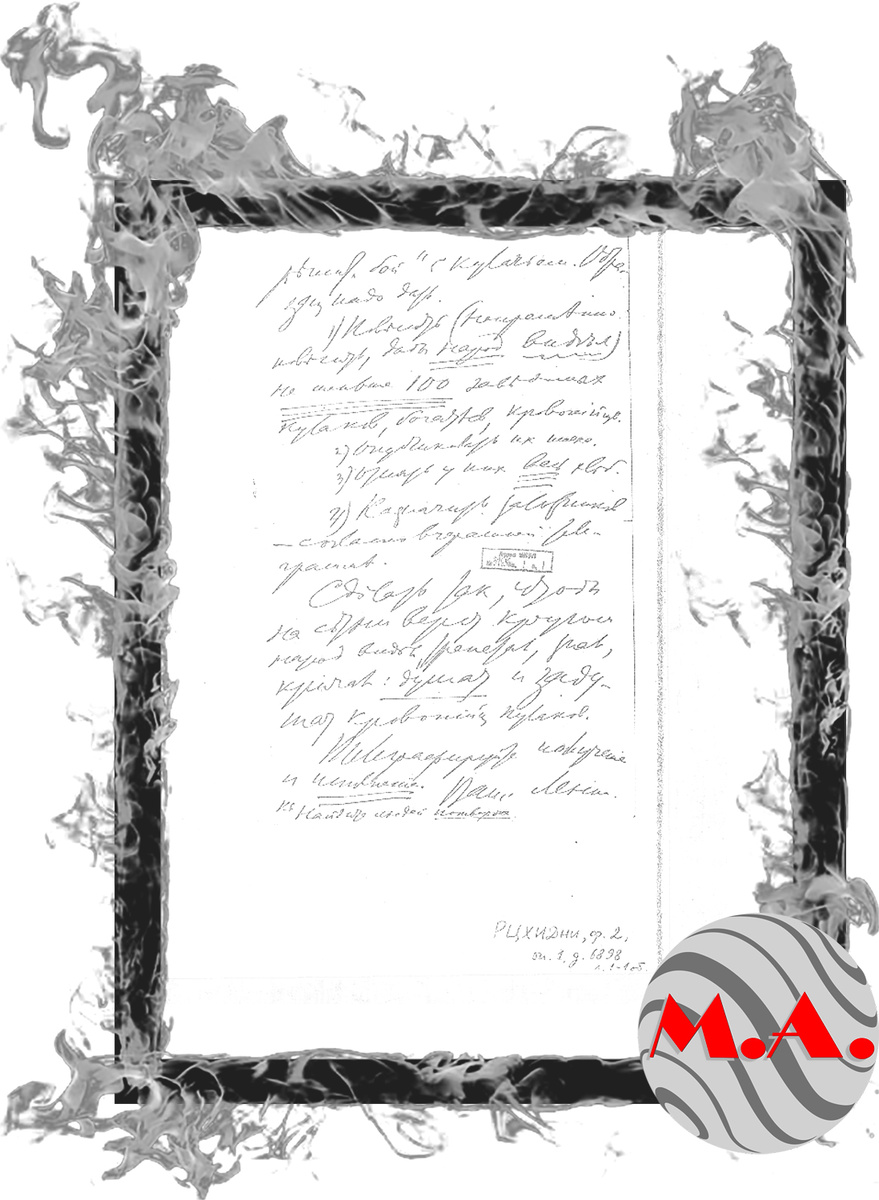 бой" с кулачьем. Обра-
зец надо дать.
1) Повесить (непременно
повесить, дабы народ видел)
не меньше 100 заведомых
кулаков, богатеев, кровопийц.
2) Опубликовать их имена.
3) Отнять у них весь хлеб.
4) Назначить заложников
— согласно вчерашней теле-
грамме.
Сделать так, чтобы
на сотни верст кругом
народ видел, трепетал, знал,
кричал: душат и заду-
шат кровопийц кулаков.
Телеграфируйте получение
и исполнение. Ваш Ленин.
Найдите людей потверже.
РЦХИДНИ, ф. 2,
оп. 1, д. 6898
л. 1-1 об.
M.A.